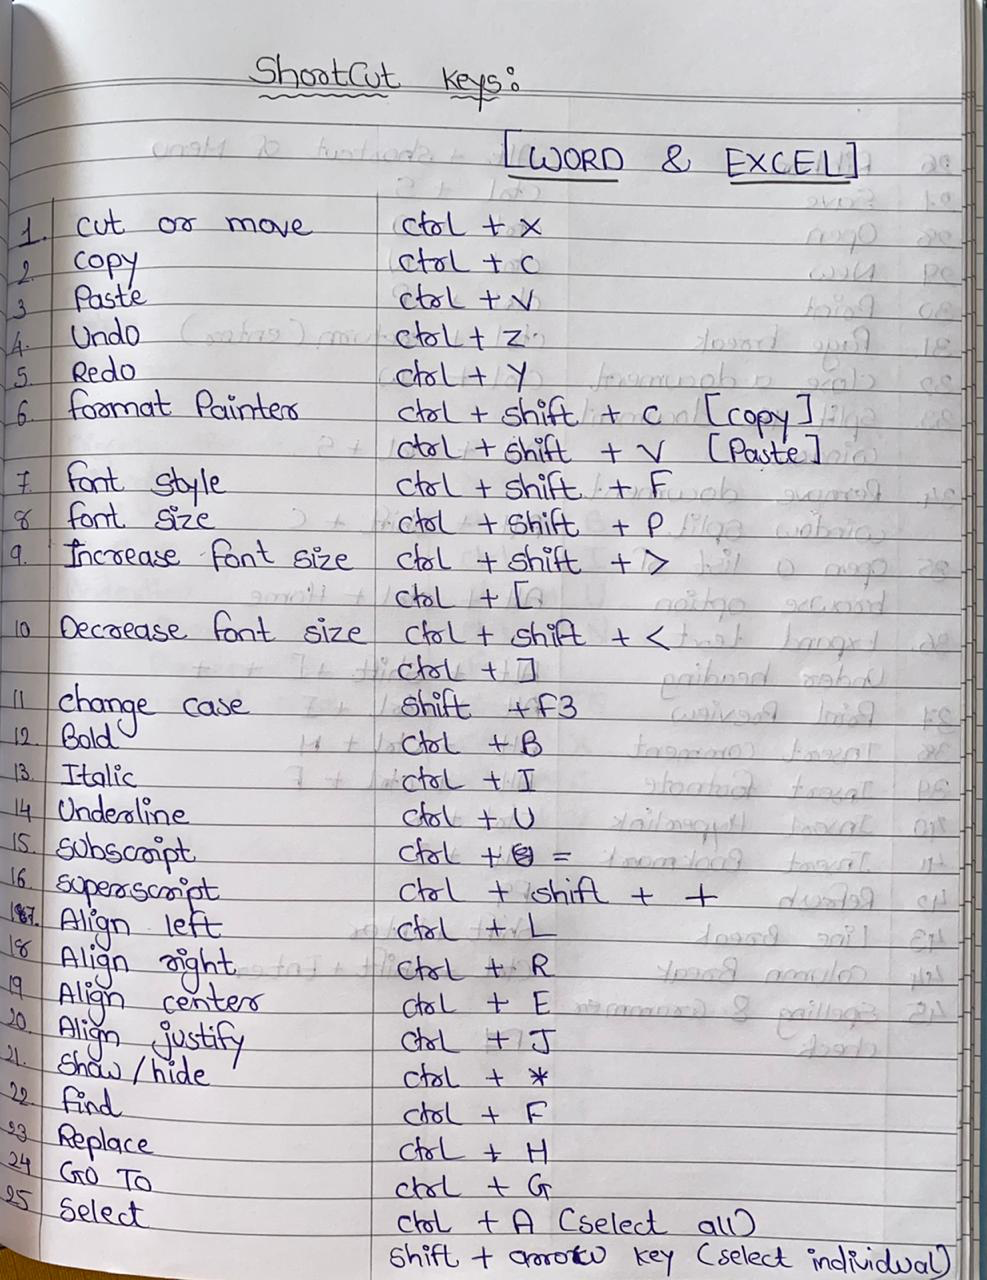 Shortcut keys:
[WORD & EXCEL]
1. cut or move ctrl + X
2. copy ctrl + C
3 Paste ctrl + V
4. Undo ctrl + Z
5. Redo ctrl + Y
6. format Painter ctrl + shift + C [copy]
ctrl + shift + V [Paste]
7. font style ctrl + shift + F
8 font size ctrl + shift + P
9. Increase font size ctrl + shift + >
ctrl + [
10 Decrease font size ctrl + shift + <
ctrl + ]
11 change case shift + F3
12. Bold ctrl + B
13. Italic ctrl + I
14 Underline ctrl + U
15. subscript ctrl + =
16. superscript ctrl + shift + +
17. Align left ctrl + L
18 Align right ctrl + R
19 Align center ctrl + E
20. Align justify ctrl + J
21. Show/hide ctrl + *
22. find ctrl + F
23 Replace ctrl + H
24 GO TO ctrl + G
25 Select ctrl + A (select all)
shift + arrow key (select individual)